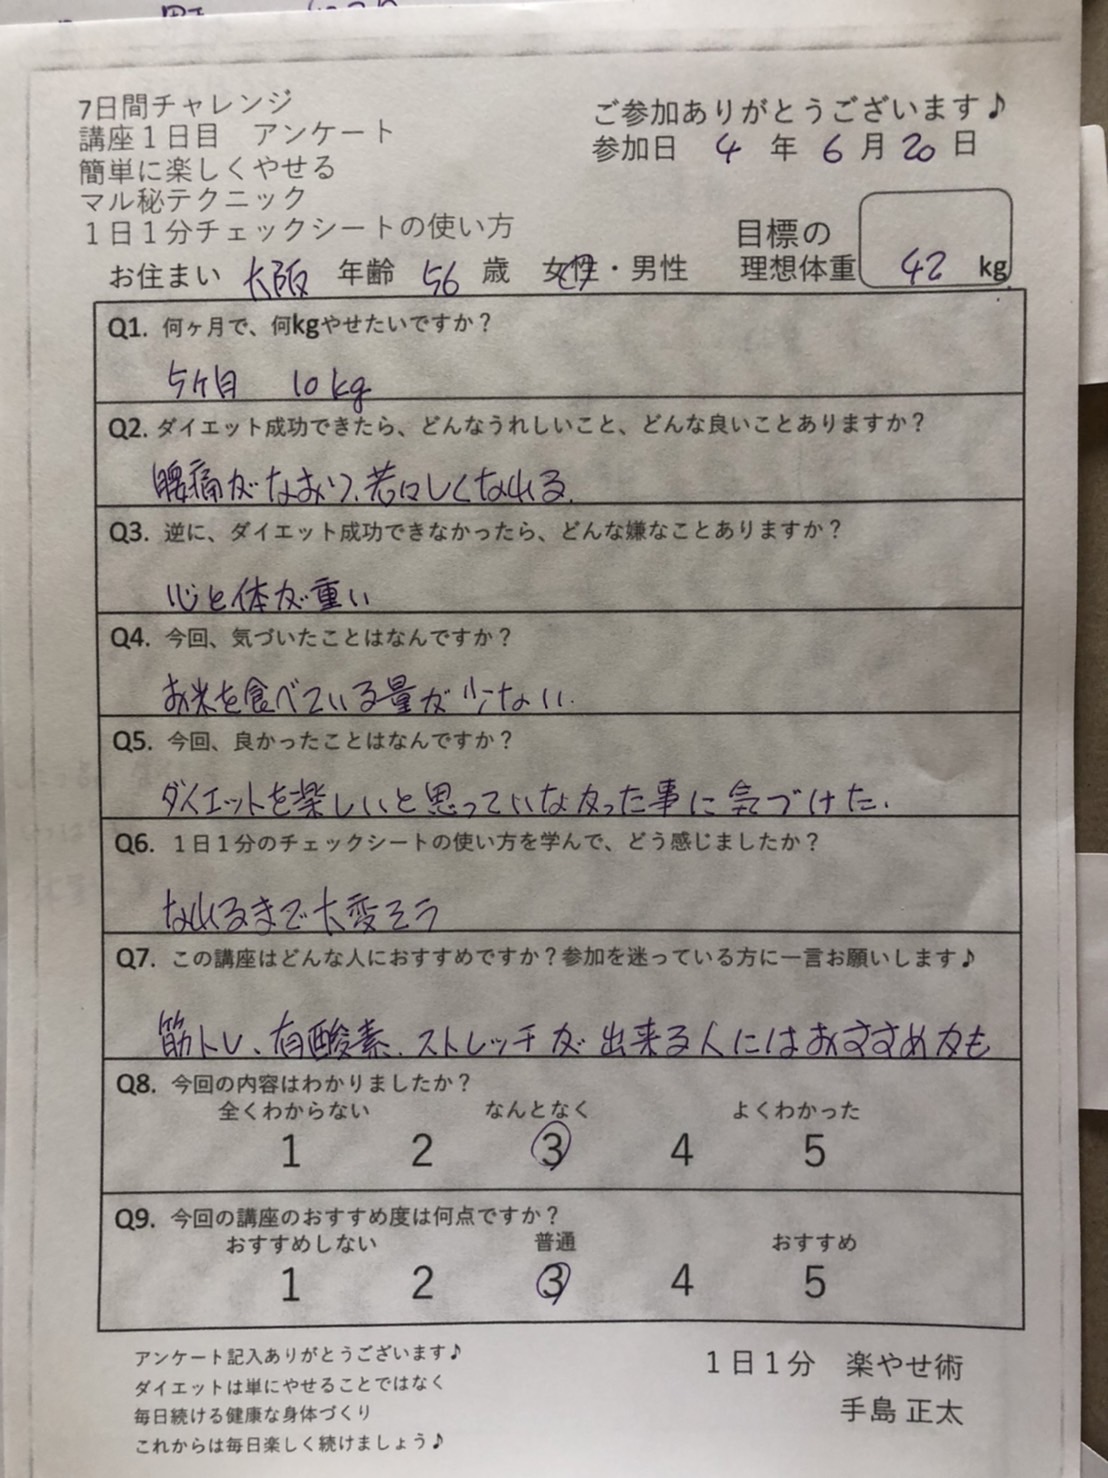 7日間チャレンジ
講座1日目　アンケート
簡単に楽しくやせる
マル秘テクニック
1日1分チェックシートの使い方
ご参加ありがとうございます♪
参加日 4 年 6 月 20 日
目標の
理想体重 42 kg
お住まい 大阪 年齢 56 歳 女性・男性
Q1. 何ヶ月で、何kgやせたいですか？
5ヶ月 10kg
Q2. ダイエット成功できたら、どんなうれしいこと、どんな良いことありますか？
腰痛がなおり、若々しくなれる。
Q3. 逆に、ダイエット成功できなかったら、どんな嫌なことありますか？
心と体が重い
Q4. 今回、気づいたことはなんですか？
お米を食べている量が少ない.
Q5. 今回、良かったことはなんですか？
ダイエットを楽しいと思っていなかった事に気づけた.
Q6. 1日1分のチェックシートの使い方を学んで、どう感じましたか？
なれるまで大変そう
Q7. この講座はどんな人におすすめですか？参加を迷っている方に一言お願いします♪
筋トレ、有酸素、ストレッチが出来る人にはおすすめかも
Q8. 今回の内容はわかりましたか？
全くわからない なんとなく よくわかった
1 2 3 4 5
Q9. 今回の講座のおすすめ度は何点ですか？
おすすめしない 普通 おすすめ
1 2 3 4 5
アンケート記入ありがとうございます♪
ダイエットは単にやせることではなく
毎日続ける健康な身体づくり
これからは毎日楽しく続けましょう♪
1日1分　楽やせ術
手島 正太